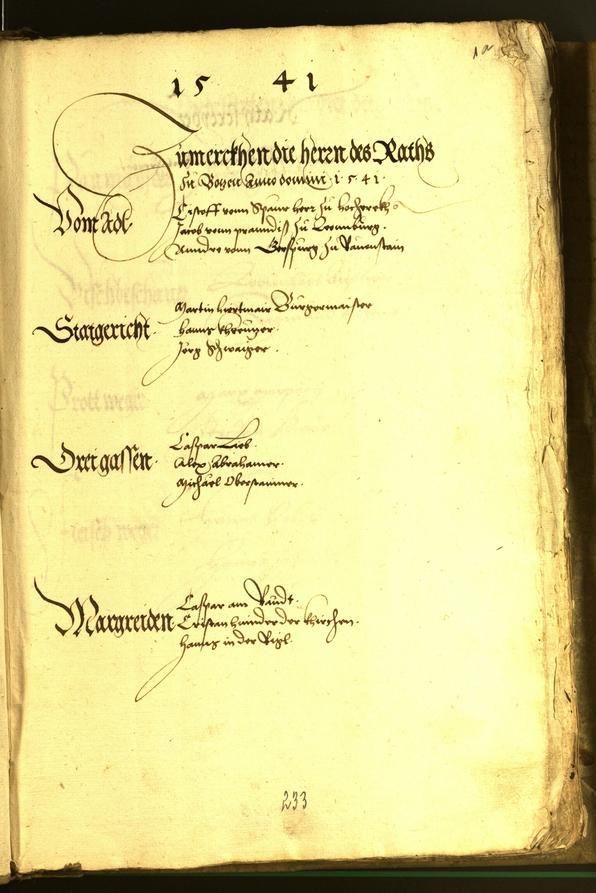 1a
15 41
Zumerckhen die herrn des Raths
Zu Bozen Anno domini 1541.
Vom Adl. Cristoff vonn Spaur herr zu hocheppan
Jacob vonn pranndiss zu Leonnburg.
Anndre vonn zu Rauenstain
Statgericht. Martin hiertmair Burgermaister
hanns khreutzer.
Jörg Schwaiger.
Obergassen. Caspar Lieb.
Alex Abrahamer.
Michael Obertanner.
Margreiden Caspar am Randt.
Cristan hinnder der khirchen.
hanns in der Rigl.
233